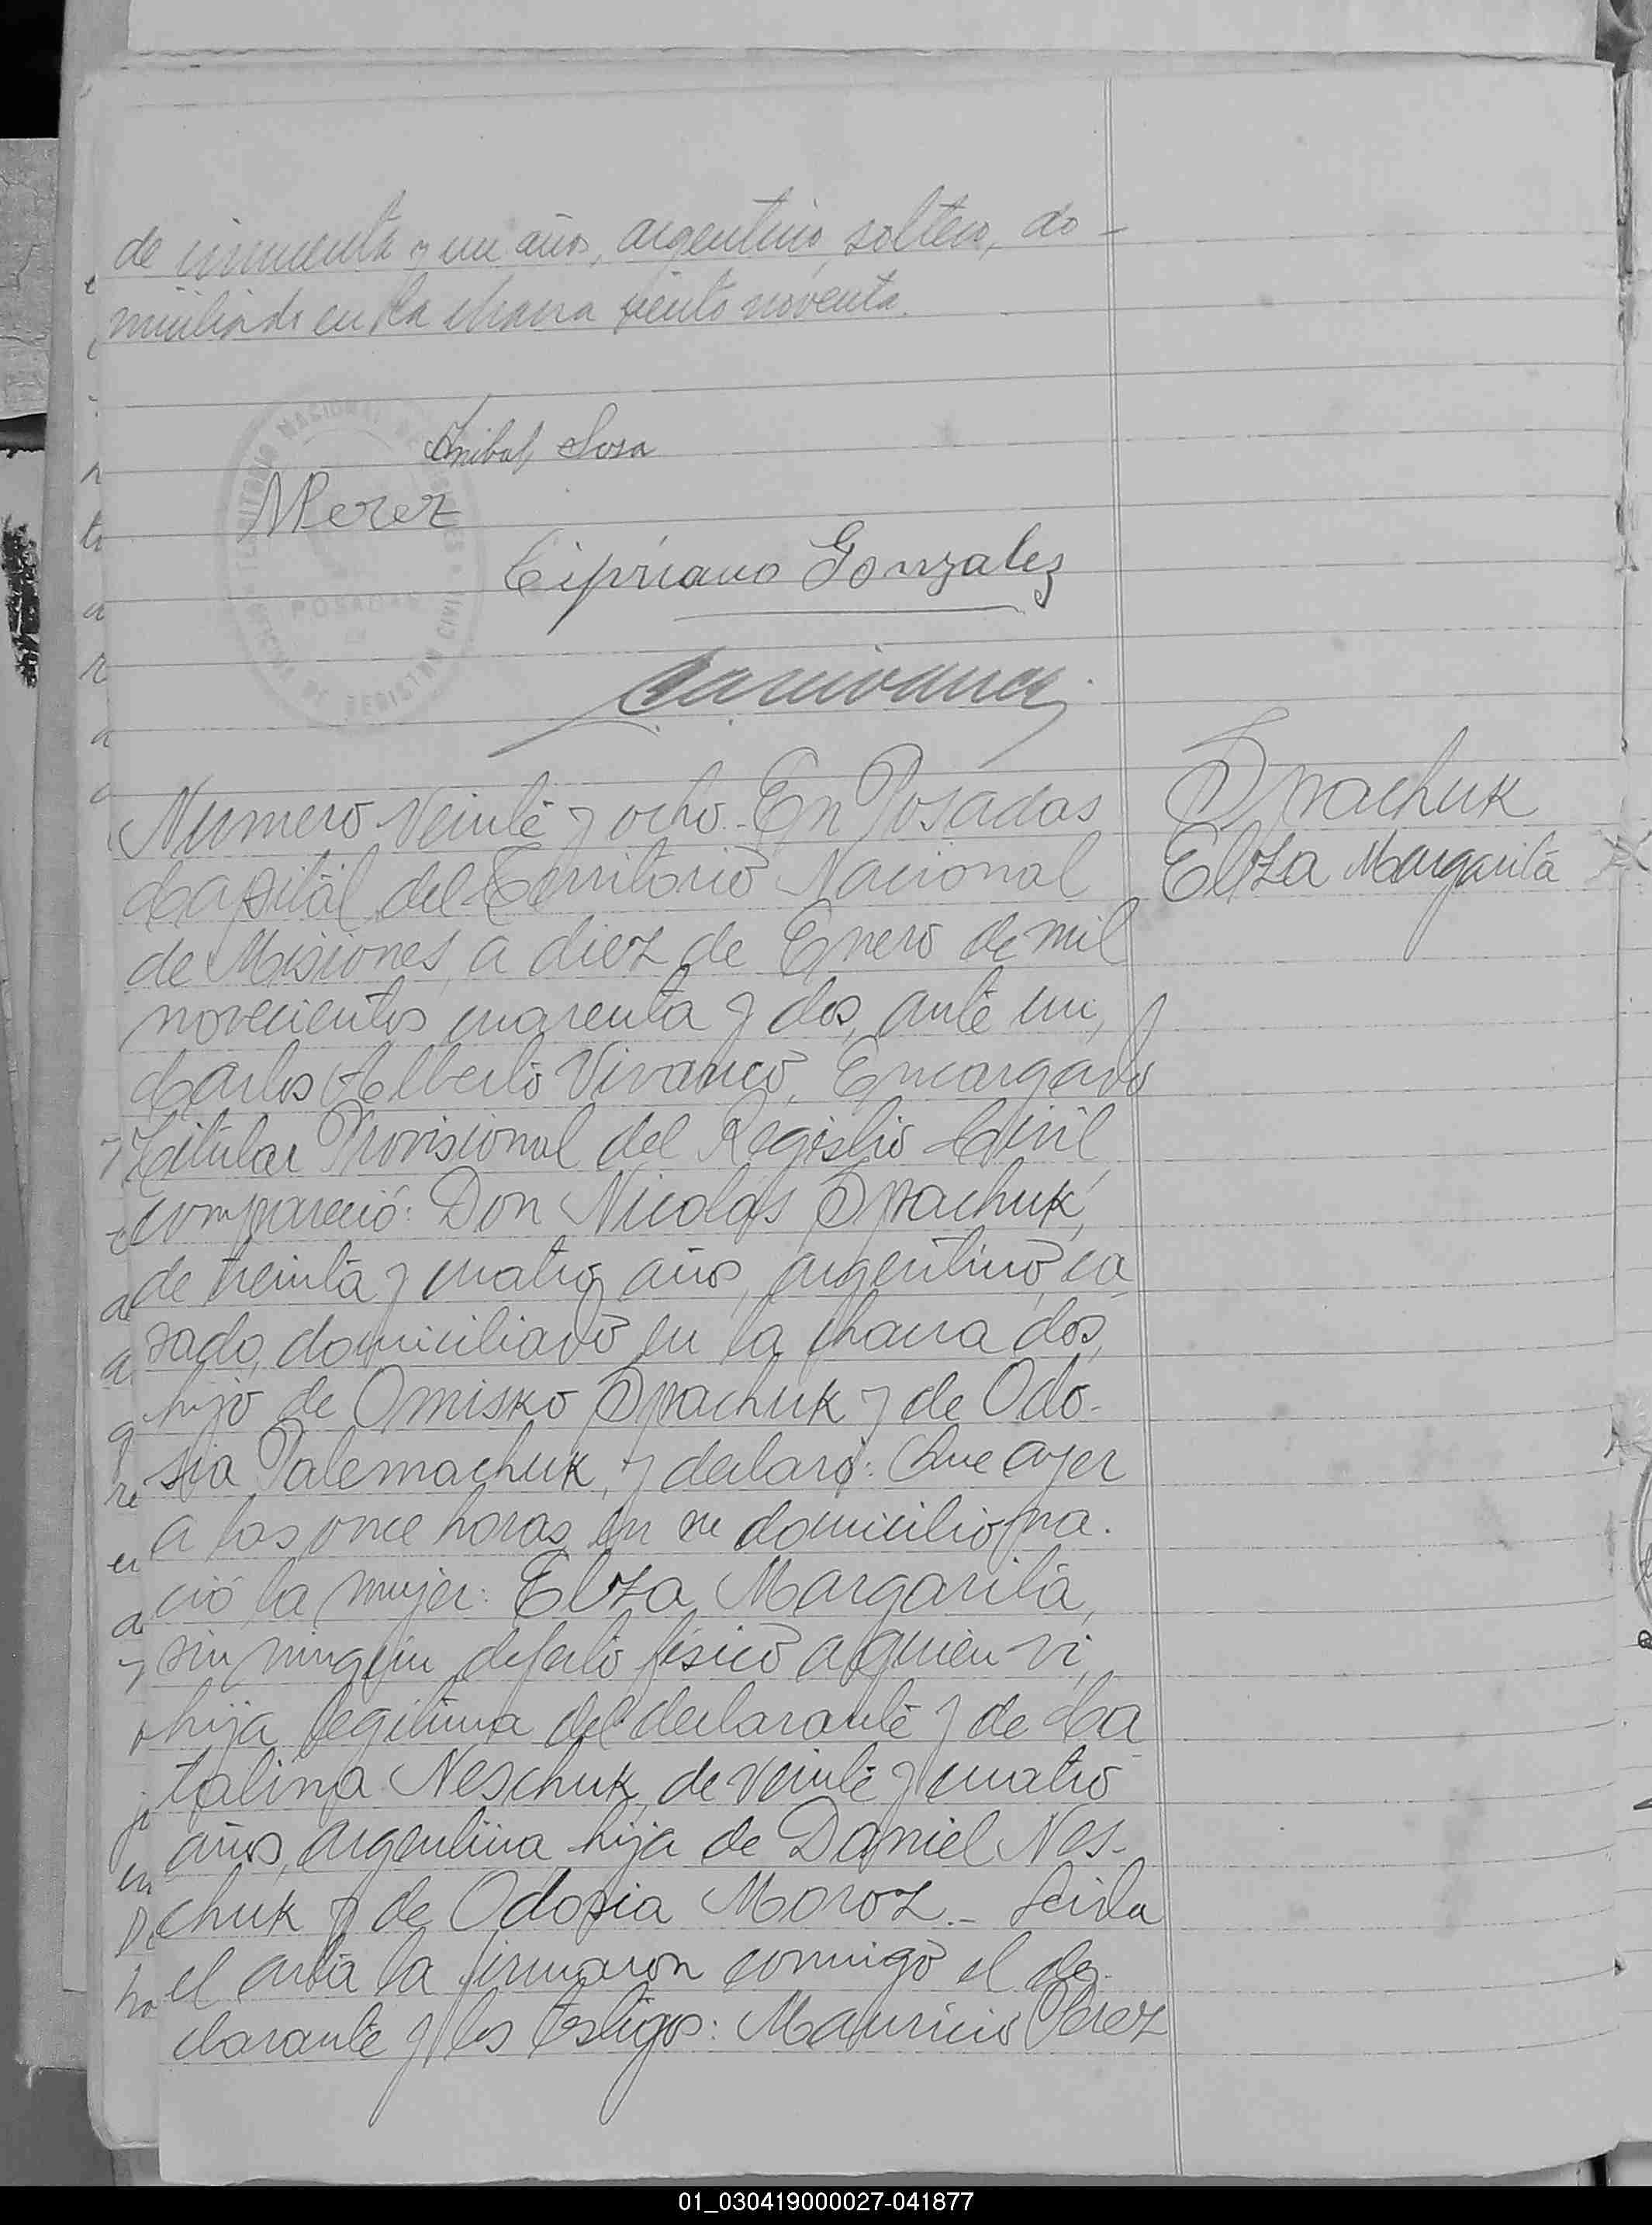 de cincuenta y un años, argentino, soltero, do-
miciliado en la chacra ciento noventa.
TERRITORIO NACIONAL DE MISIONES
POSADAS
OFICINA DE REGISTRO CIVIL
Anibal Sosa
MPerez
Cipriano Gonzalez
Numero Veinte y ocho. En Posadas
Capital del Territorio Nacional
de Misiones, a diez de Enero de mil
novecientos cuarenta y dos, ante mi,
Carlos Alberto Vivanco, Encargado
Titular Provisional del Registro Civil,
compareció: Don Nicolás Spachuk,
de treinta y cuatro años, argentino, ca
sado, domiciliado en la chacra dos,
hijo de Omisko Spachuk y de Odo-
sia Palemachuk, y declaró: Que ayer
a las once horas en su domicilio na-
ció la mujer: Elza Margarita,
sin ningún defecto físico a quien vi,
hija legítima del declarante y de Ca
talina Neschuk, de veinte y cuatro
años, argentina hija de Daniel Nes-
chuk y de Odosia Moroz.- Leida
el acta la firmaron conmigo el de-
clarante y los testigos: Mauricio Perez
Spachuk
Elza Margarita
01_030419000027-041877